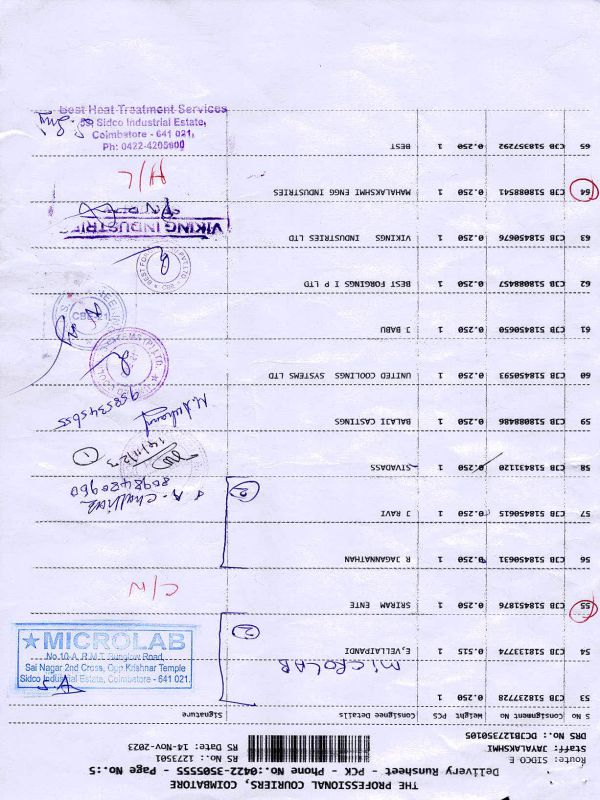 THE PROFESSIONAL COURIERS, COIMBATORE
Delivery Runsheet - PCK - Phone No.:0422-3505555 - Page No.:5
Route: SIDCO E
Staff: JAYALAKSHMI
DRS No.: DCJB127350105
RS No.: 1273501
RS Date: 14-Nov-2023
S No Consignment No Weight PCS Consignee Details Signature
53 CJB 518237728 0.250 1 MICROLAB
54 CJB 518313774 0.515 1 E,VELLAIPANDI
55 CJB 518451876 0.250 1 SRIRAM ENTE C/N
56 CJB 518450631 0.250 1 R JAGANNATHAN
57 CJB 518450615 0.250 1 J RAVI
58 CJB 518431120 0.250 1 SIVADASS
59 CJB 518088486 0.250 1 BALAJI CASTINGS
60 CJB 518450593 0.250 1 UNITED COOLINGS SYSTEMS LTD
61 CJB 518450650 0.250 1 J BABU
62 CJB 518088457 0.250 1 BEST FORGINGS I P LTD
63 CJB 518450676 0.250 1 VIKINGS INDUSTRIES LTD
64 CJB 518088541 0.250 1 MAHALAKSHMI ENGG INDUSTRIES
65 CJB 518357292 0.250 1 BEST
2
2
1
8098420960
14/11/23
9585345655
VIKING INDUSTRIES
★MICROLAB
No.10-A, R.M.T. Bunglow Road,
Sai Nagar 2nd Cross, Opp.Krishnar Temple
Sidco Industrial Estate, Coimbatore - 641 021.
Best Heat Treatment Services
Sidco Industrial Estate,
Coimbatore - 641 021,
Ph: 0422-4205600